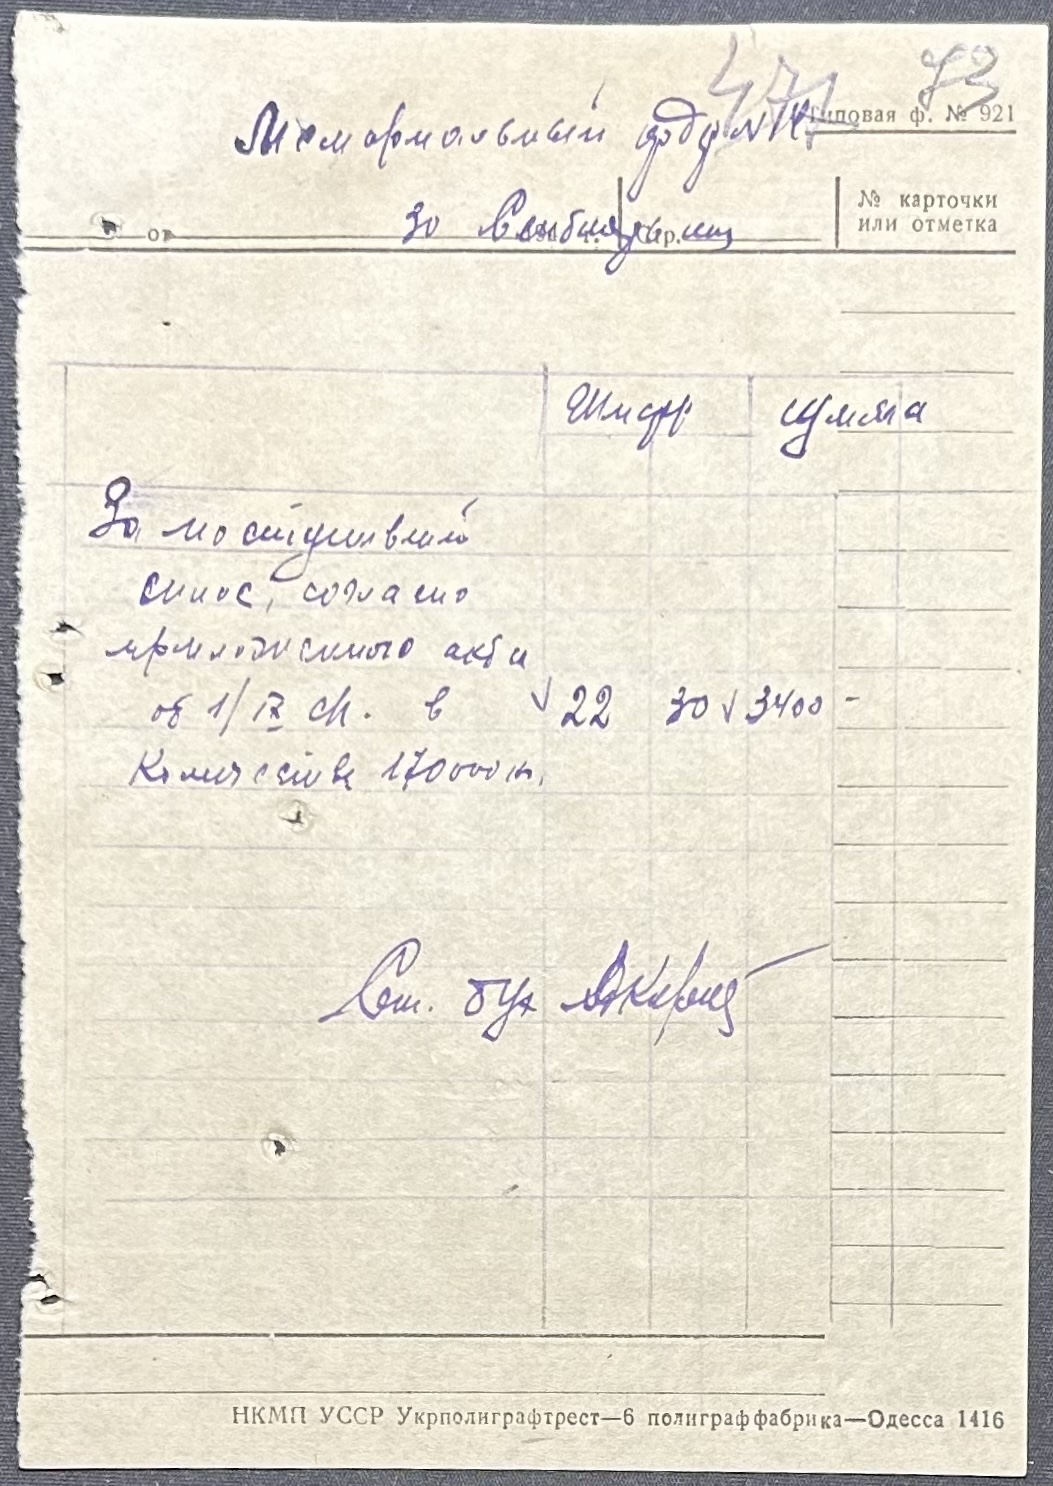 471 73
Типовая ф. № 921
Мемориальный ордер N 14
№ карточки
или отметка
от 30 Сентября
Шифр Сумма
За поступивший
согласно
приложенного акта
от 1/IX с/г. в 22 30 3400 -
Количестве 170000
Ст. бух
НКМП УССР Укрполиграфтрест—6 полиграффабрика—Одесса 1416